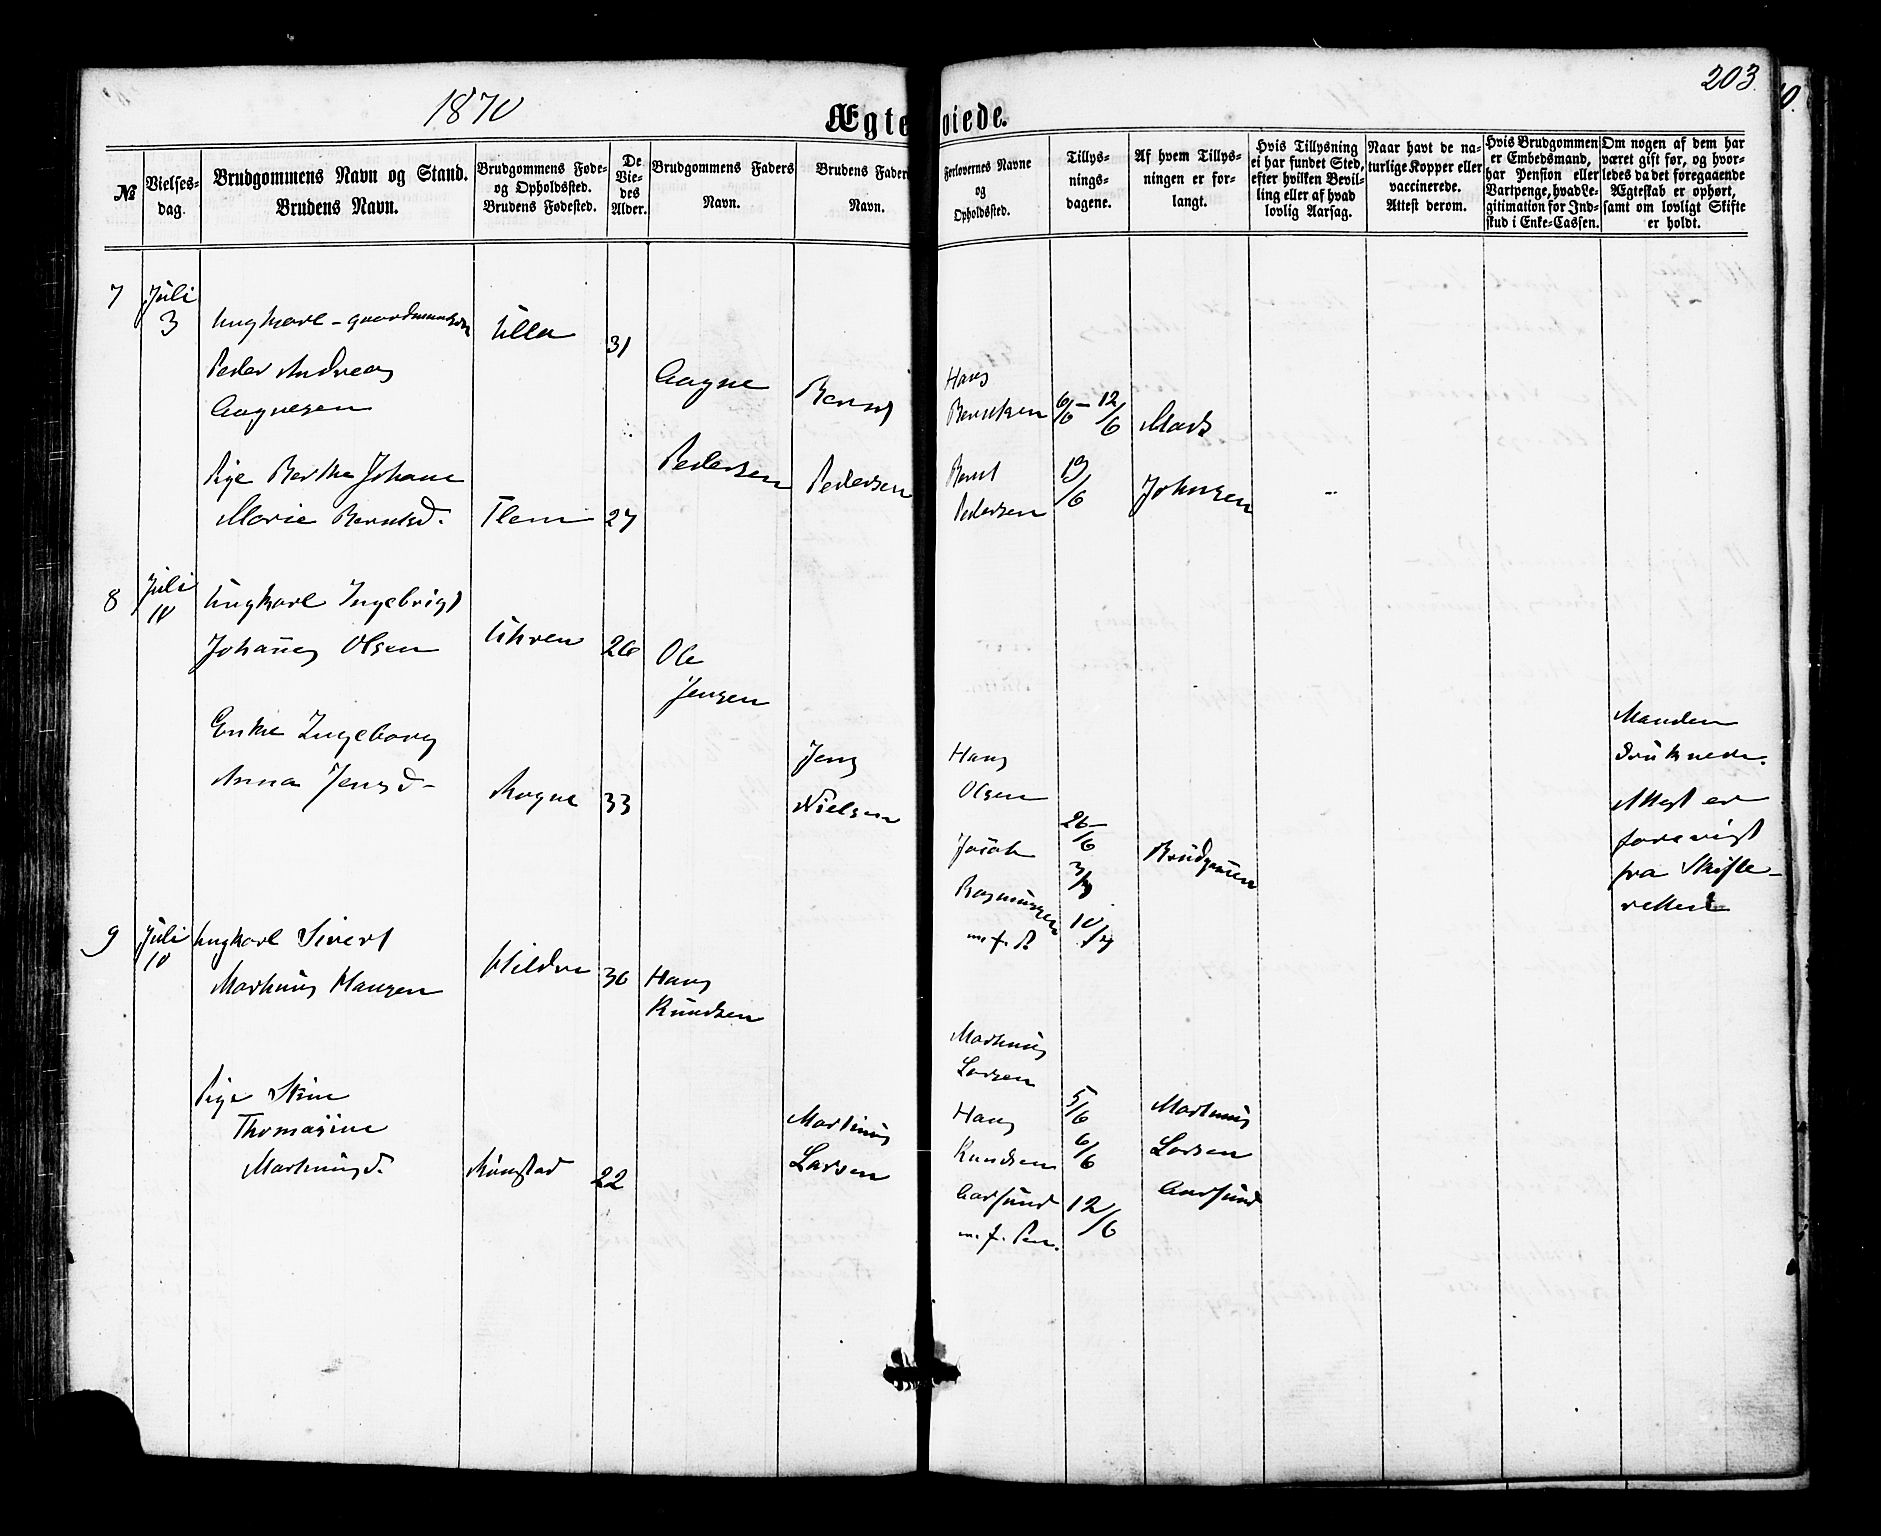 1870
203.
Ægte
viede.
№
Vielses-
dag.
Brudgommens Navn og Stand.
Brudens Navn.
Brudgommens Føde-
og Opholdssted.
Brudens Fødested.
De
Vie-
des
Alder.
Brudgommens Faders
Navn.
Brudens Faders
Navn.
Forlovernes Navne
og
Opholdssted.
Tillys-
nings-
dagene.
Af hvem Tillys-
ningen er for-
langt.
Hvis Tillysning
ei har fundet Sted,
efter hvilken Bevil-
ling eller af hvad
lovlig Aarsag.
Naar havt de na-
turlige Kopper eller
vaccinerede.
Attest derom.
Hvis Brudgommen
er Embedsmand,
har Pension eller
Vartpenge, hvad Le-
gitimation for Ind-
skud i Enke-Cassen.
Om nogen af dem har
været gift før, og hvor-
ledes da det foregaaende
Ægteskab er ophørt,
samt om lovligt Skifte
er holdt.
7
Juli
3
Ungkarl - gaardmandsøn
Peder Andreas
Aagnesen
Ulla
31
Aagne
Pedersen
Pige Berthe Johane
Marie Berntsd.
Flem
27
Bernt
Pedersen
Hans
Berntsen
Bernt
Pedersen
6/6 - 12/6
19/6
Mads
Johnsen
8
Juli
10
Ungkarl Ingebrigt
Johannes Olsen
Uhren
26
Ole
Jensen
Enke Ingeborg
Anna Jensd-
Rogne
33
Jens
Nielsen
Hans
Olsen
Jacob
Rasmussen
m. f. P.
26/6
3/7
10/7
Brudgommen
Manden
druknede.
Attest er
forevist
fra Skifte-
retten
9
Juli
10
Ungkarl Sivert
Martinus Hansen
Hildre
30
Hans
Knudsen
Pige Stine
Thomasine
Martinusd.
Rønstad
22
Martinus
Larsen
Martinus
Larsen
Hans
Knudsen
Aarsund
m. f. Pen.
5/6
6/6
12/6
Martinus
Larsen
Aarsund